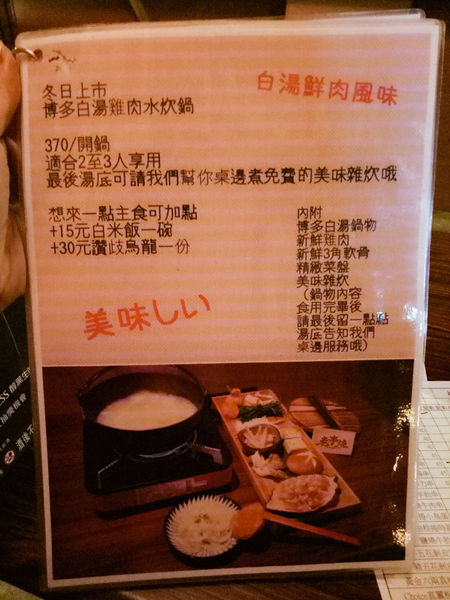 冬日上市
博多白湯雞肉水炊鍋
白湯鮮肉風味
370/開鍋
適合2至3人享用
最後湯底可請我們幫你桌邊煮免費的美味雜炊哦
想來一點主食可加點
+15元白米飯一碗
+30元讚歧烏龍一份
內附
博多白湯鍋物
新鮮雞肉
新鮮3角軟骨
精緻菜盤
美味雜炊
(鍋物內容
食用完畢後
請最後留一點點
湯底告知我們
桌邊服務哦)
美味しい